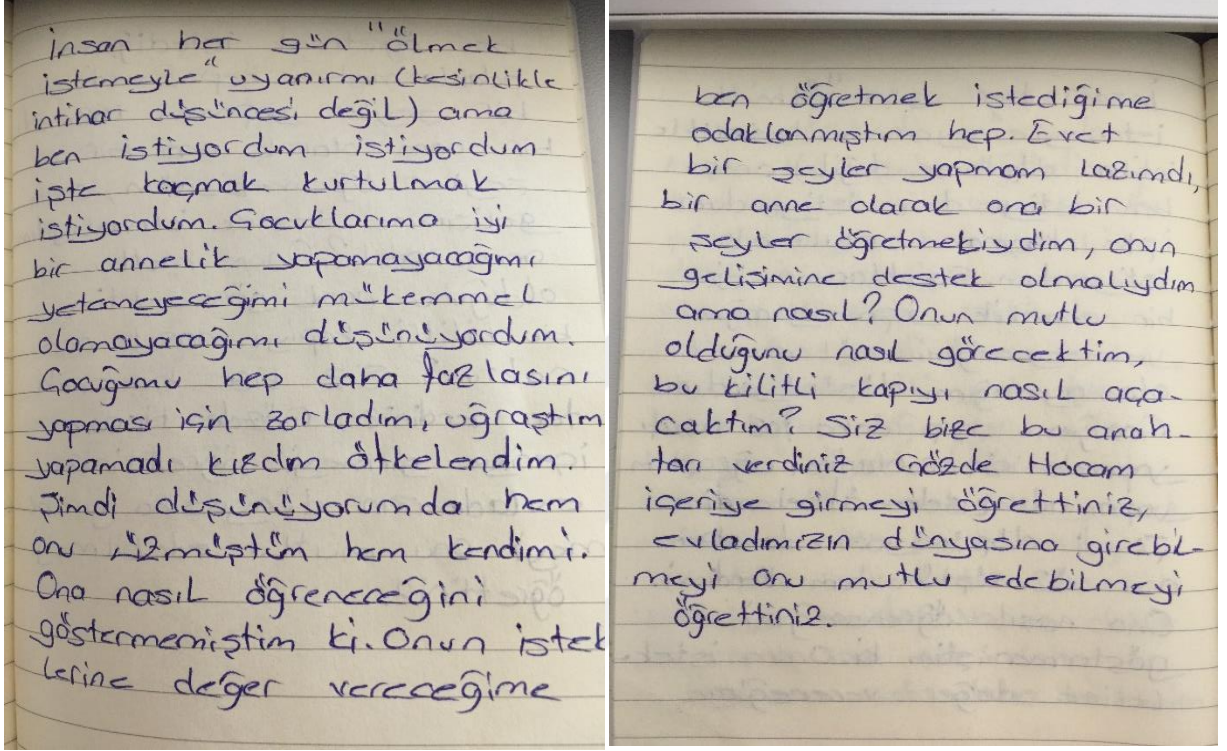 İnsan her gün "ölmek
istemeyle" uyanırmı (kesinlikle
intihar düşüncesi değil) ama
ben istiyordum istiyordum
işte kaçmak kurtulmak
istiyordum. Çocuklarıma iyi
bir annelik yapamayacağmı
yetemeyeceğimi mükemmel
olamayacağımı düşünüyordum.
Çocuğumu hep daha fazlasını
yapması için zorladım, uğraştım
yapamadı kızdım ötkelendim.
Şimdi düşünüyorumda hem
onu üzmüştüm hem kendimi.
Ona nasıl öğreneceğini
göstermemiştim ki. Onun istek
lerine değer vereceğime
ben öğretmek istediğime
odaklanmıştım hep. Evet
bir şeyler yapmam lazımdı,
bir anne olarak ona bir
şeyler öğretmekiydim, onun
gelişimine destek olmalıydım
ama nasıl? Onun mutlu
olduğunu nasıl görecektim,
bu kilitli kapıyı nasıl aça-
caktım? Siz bize bu anah-
tarı verdiniz Gözde Hocam
içeriye girmeyi öğrettiniz,
evladımızın dünyasına girebil-
meyi onu mutlu edebilmeyi
öğrettiniz.